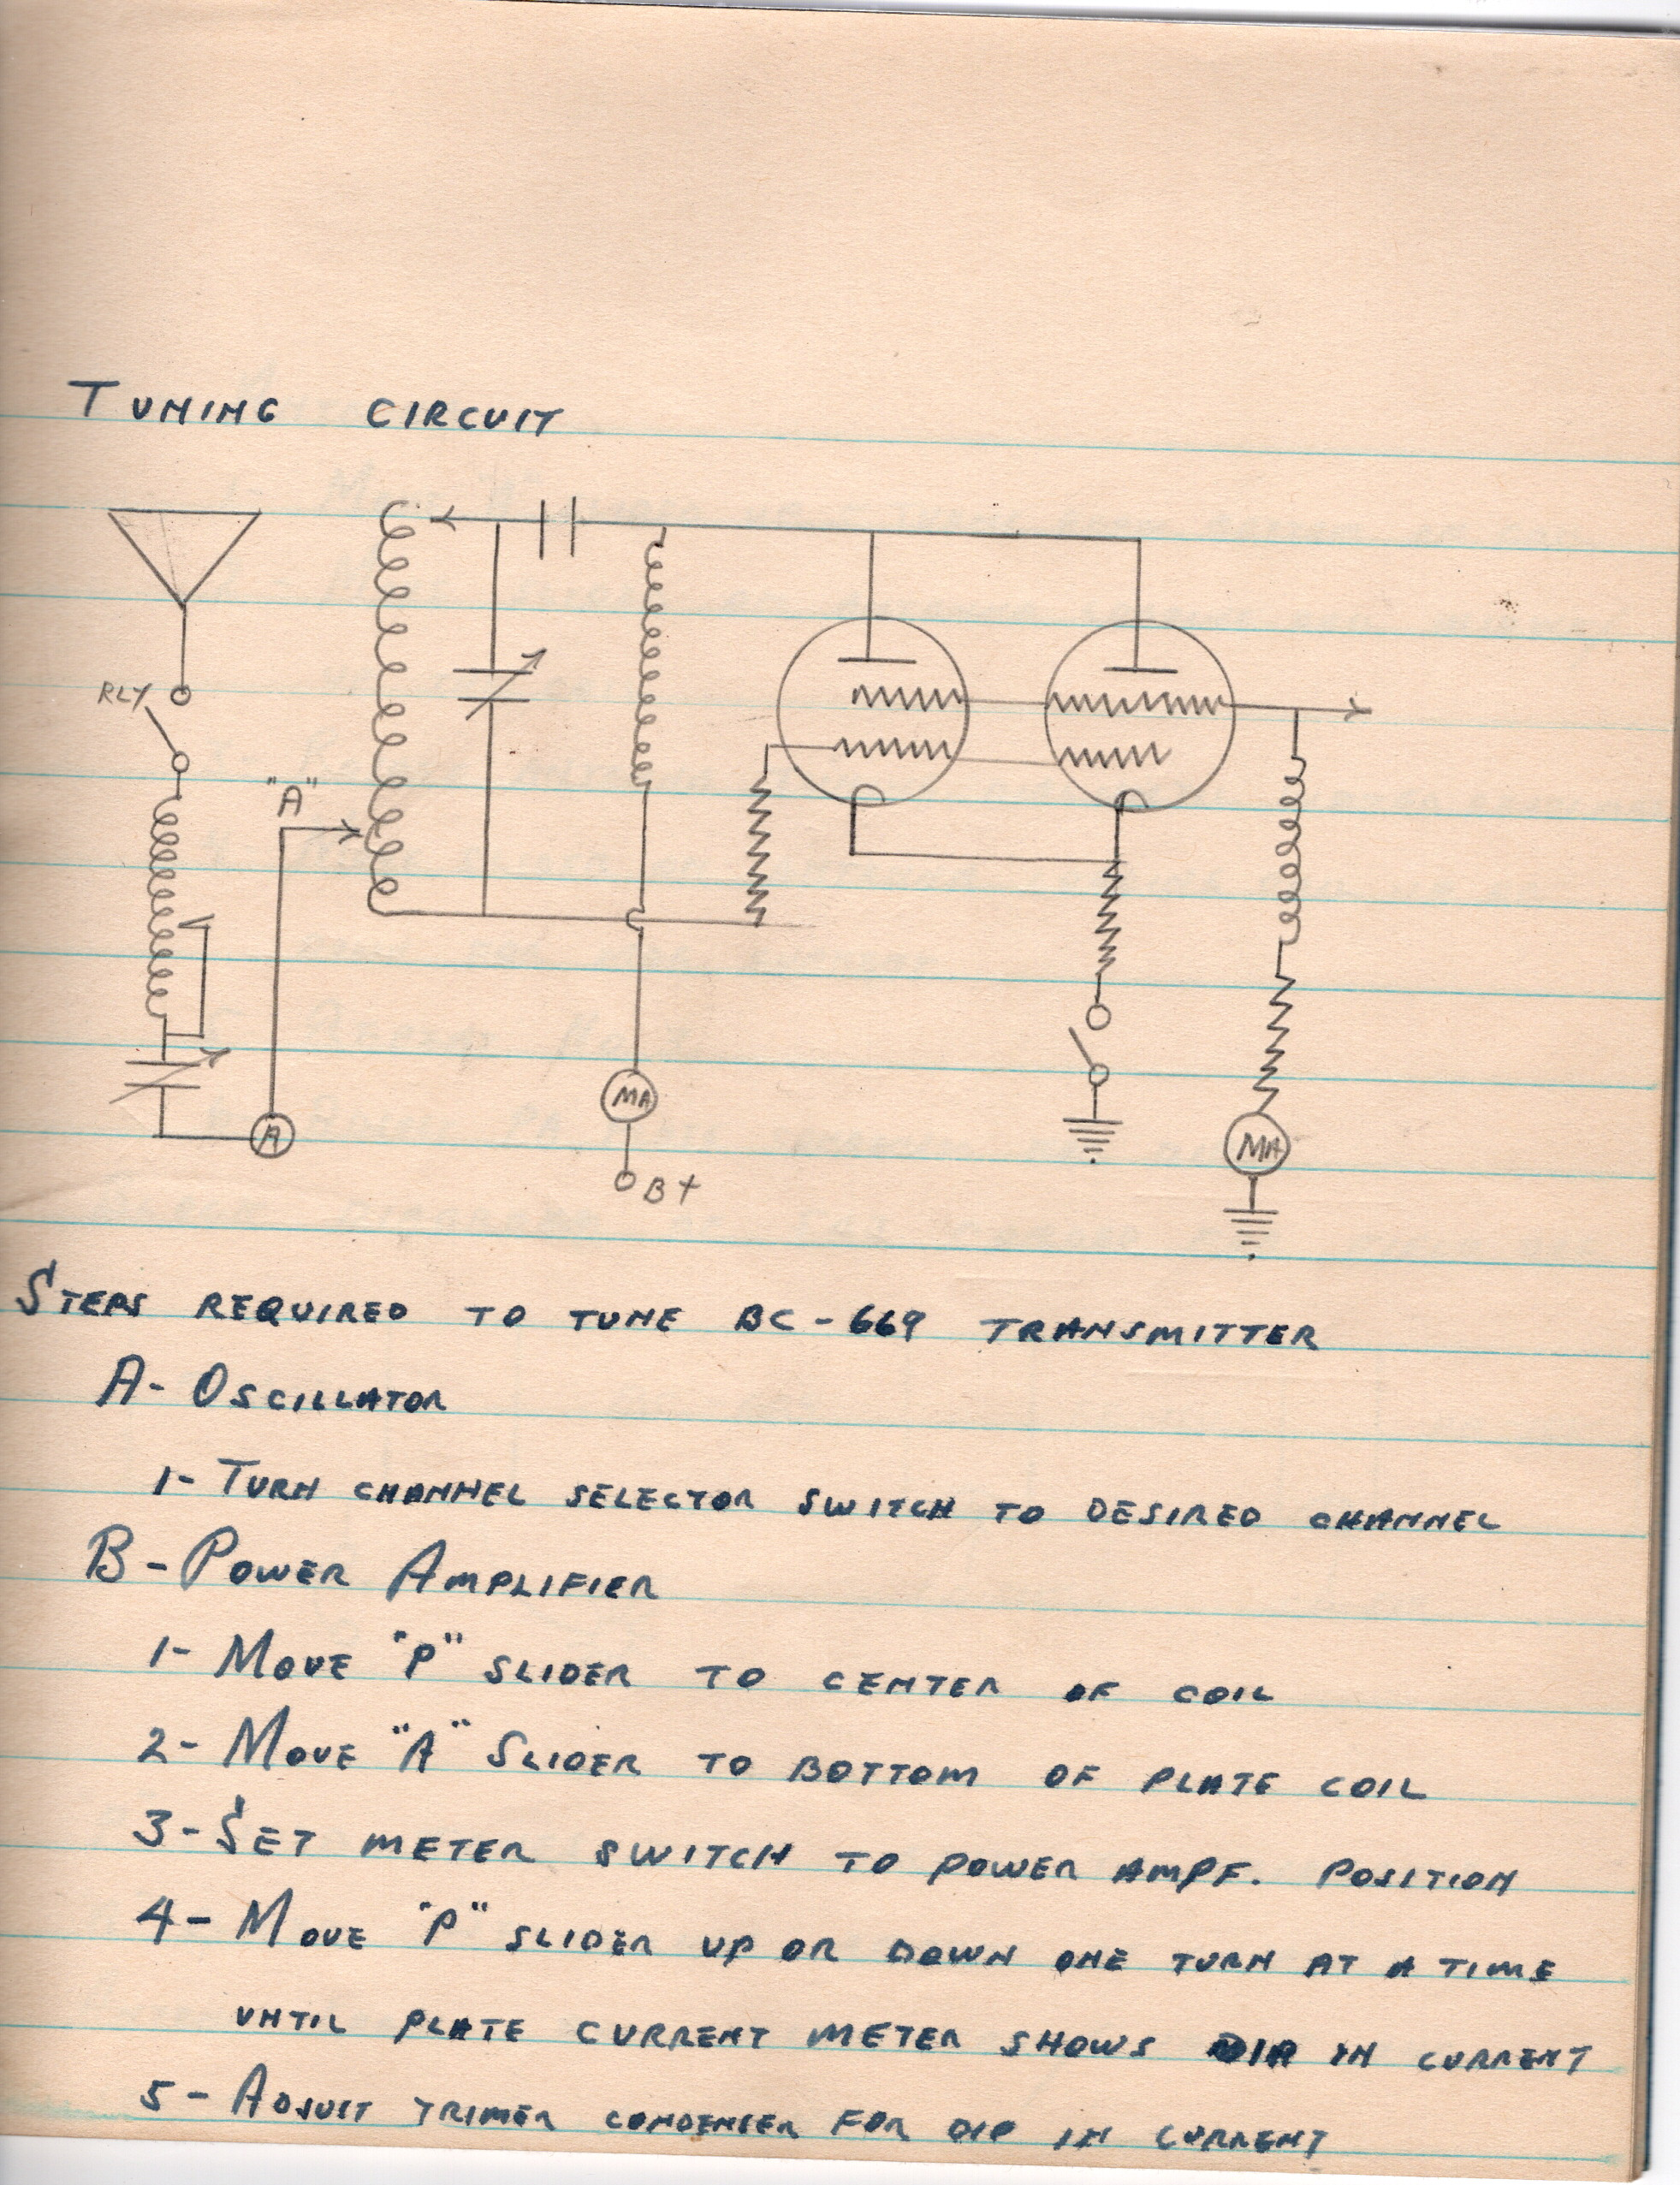 TUNING CIRCUIT
RLY
"A"
A
MA
B+
MA
STEPS REQUIRED TO TUNE BC-669 TRANSMITTER
A- OSCILLATOR
1- TURN CHANNEL SELECTOR SWITCH TO DESIRED CHANNEL
B- POWER AMPLIFIER
1- MOVE "P" SLIDER TO CENTER OF COIL
2- MOVE "A" SLIDER TO BOTTOM OF PLATE COIL
3- SET METER SWITCH TO POWER AMPF. POSITION
4- MOVE "P" SLIDER UP OR DOWN ONE TURN AT A TIME
UNTIL PLATE CURRENT METER SHOWS DIP IN CURRENT
5- ADJUST TRIMER CONDENSER FOR DIP IN CURRENT